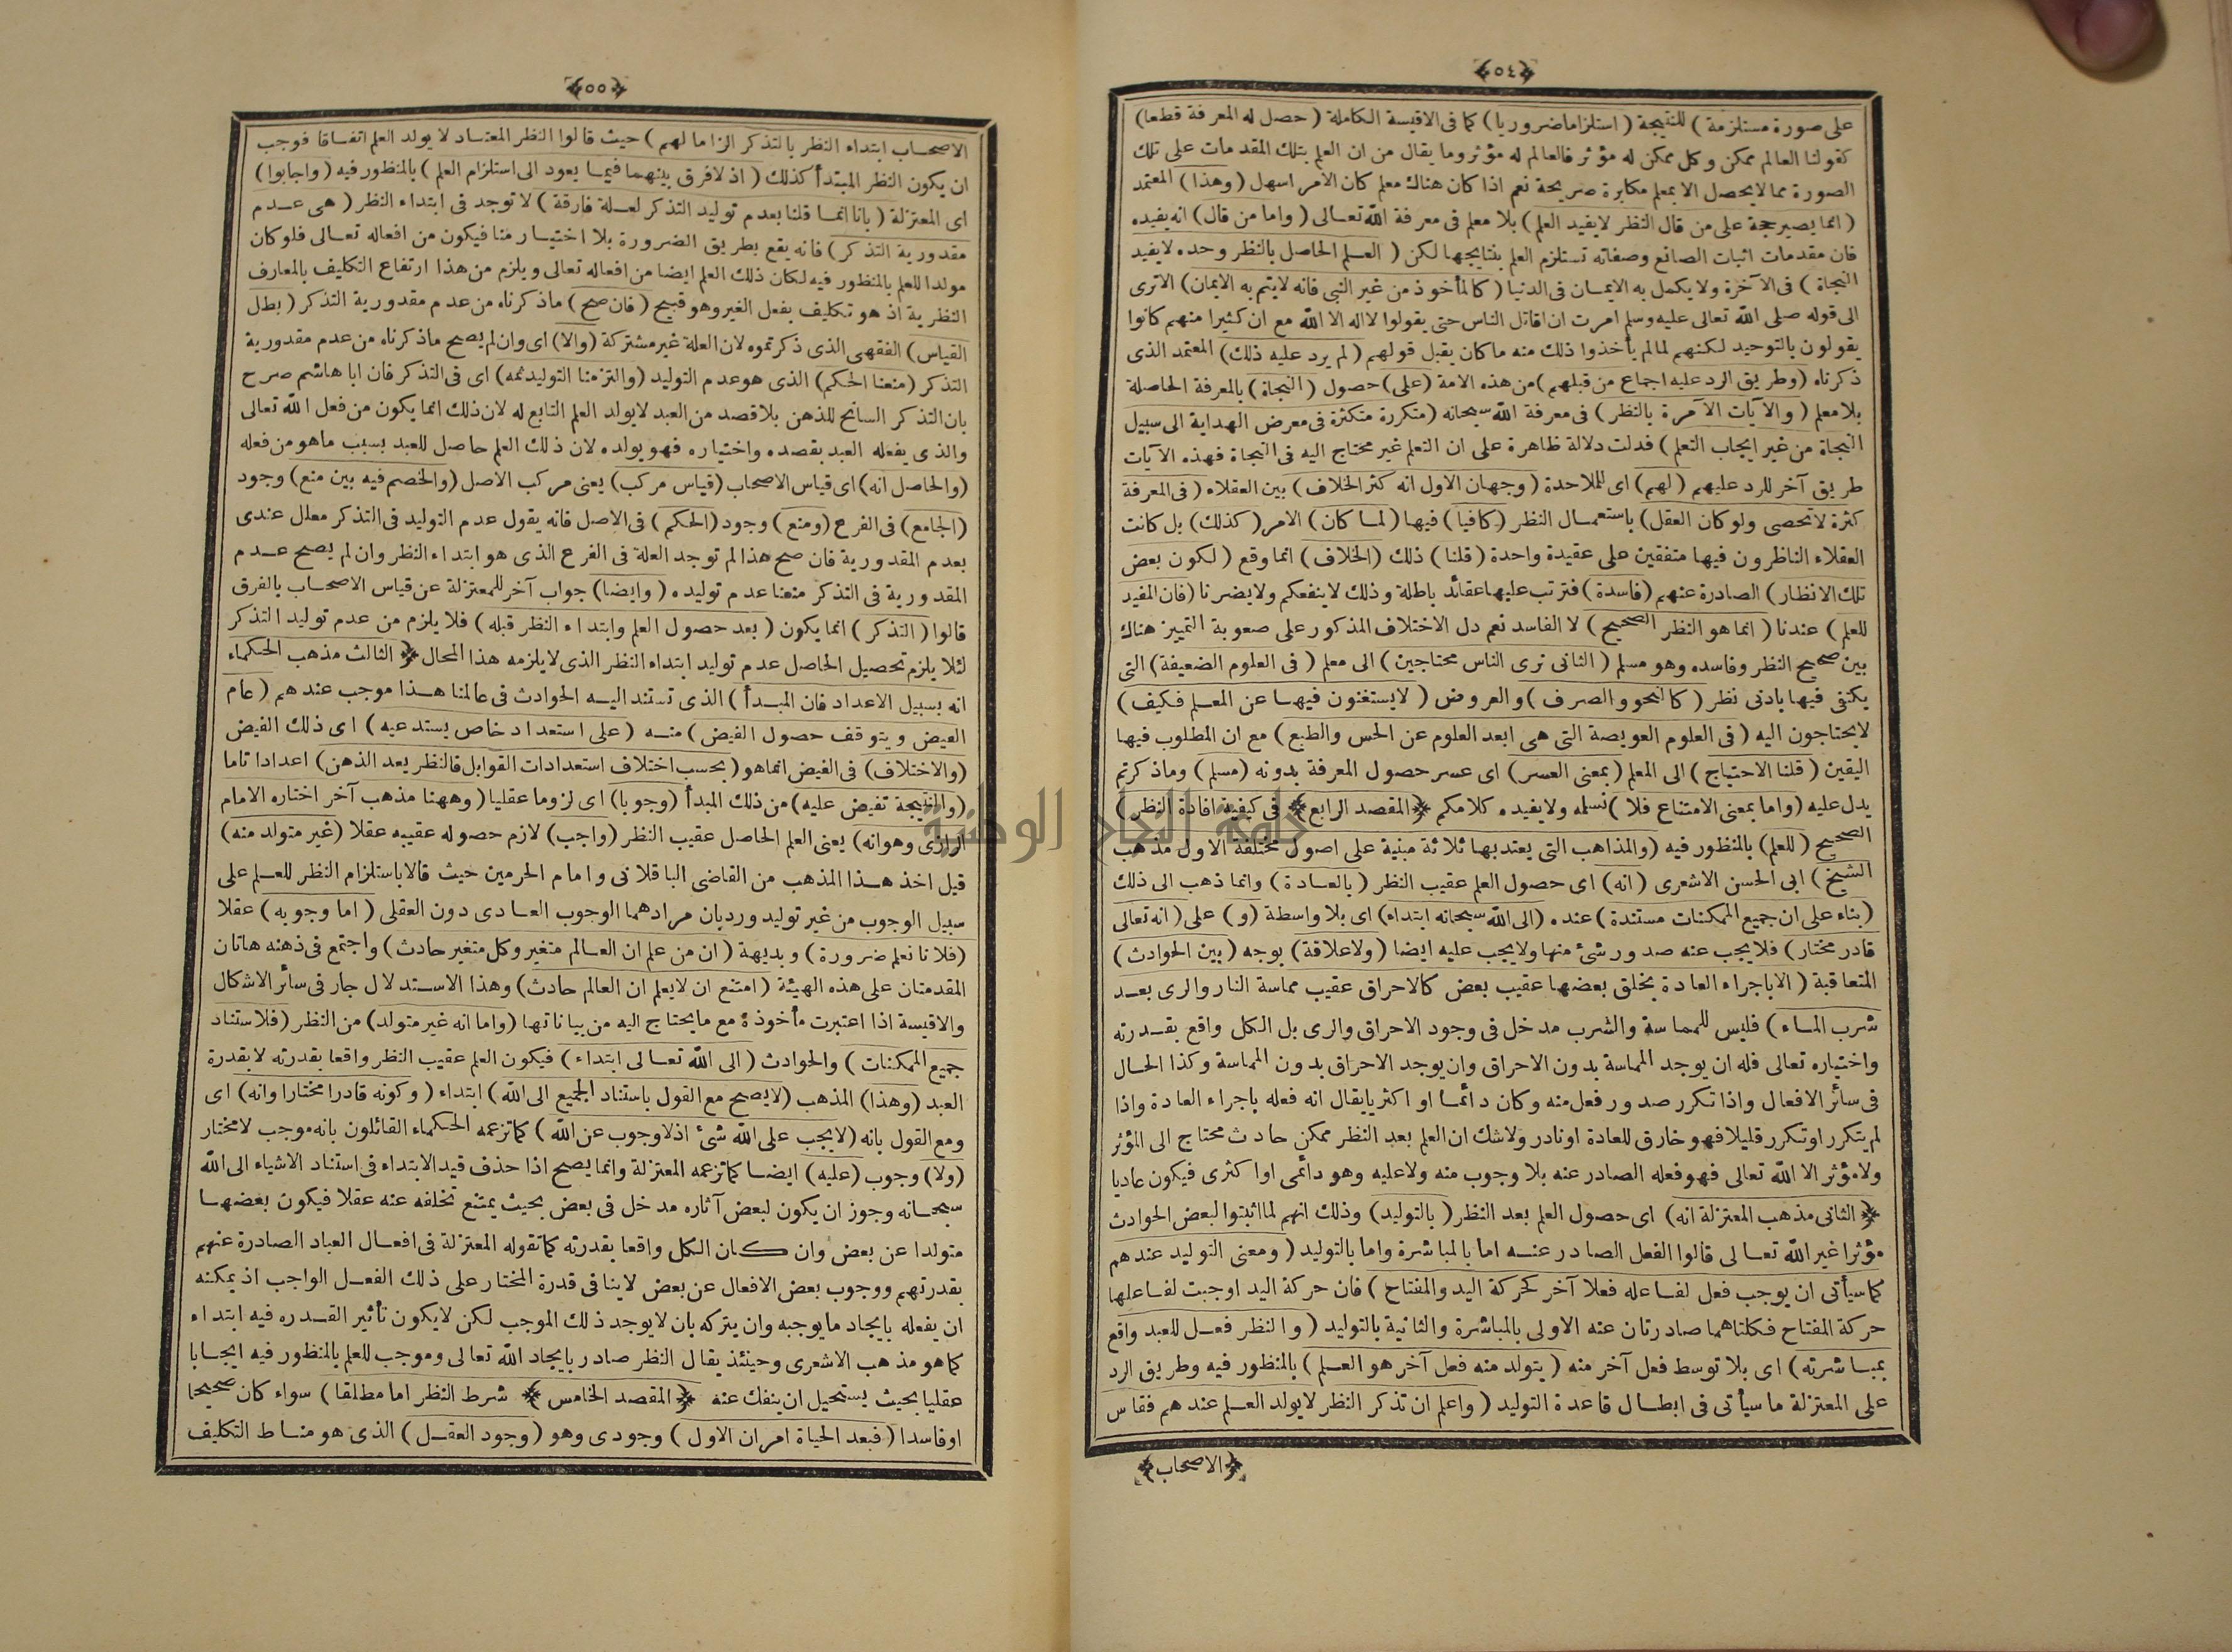 ﴿٥٤﴾
على صورة مستلزمة ) للنتيجة ( استلزاما ضروريا ) كما فى الاقيسة الكاملة ( حصل له المعرفة قطعا )
كقولنا العالم ممكن وكل ممكن له مؤثر فالعالم له مؤثر وما يقال من ان العلم بتلك المقدمات على تلك
الصورة مما لايحصل الا بمعلم مكابرة صريحة نعم اذا كان هناك معلم كان الامر اسهل ( وهذا ) المعتمد
( انما يصير حجة على من قال النظر لايفيد العلم ) بلا معلم فى معرفة الله تعالى ( واما من قال ) انه يفيده
فان مقدمات اثبات الصانع وصفاته تستلزم العلم بنتايجها لكن ( العلم الحاصل بالنظر وحده لايفيد
النجاة ) فى الآخرة ولا يكمل به الايمان فى الدنيا ( كالمأخوذ من غير النبى فانه لايتم به الايمان ) الاترى
الى قوله صلى الله تعالى عليه وسلم امرت ان اقاتل الناس حتى يقولوا لااله الا الله مع ان كثيرا منهم كانوا
يقولون بالتوحيد لكنهم لمالم يأخذوا ذلك منه ما كان يقبل قولهم ( لم يرد عليه ذلك ) المعتمد الذى
ذكرناه ( وطريق الرد عليه اجماع من قبلهم ) من هذه الامة ( على ) حصول ( النجاة ) بالمعرفة الحاصلة
بلا معلم ( والآيات الآمرة بالنظر ) فى معرفة الله سبحانه ( متكررة متكثرة فى معرض الهداية الى سبيل
النجاة من غير ايجاب التعلم ) فدلت دلالة ظاهرة على ان التعلم غير محتاج اليه فى النجاة فهذه الآيات
طريق آخر للرد عليهم ( لهم ) اى للملاحدة ( وجهان الاول انه كثر الخلاف ) بين العقلاء ( فى المعرفة
كثرة لاتحصى ولو كان العقل ) باستعمال النظر ( كافيا ) فيها ( لما كان ) الامر ( كذلك ) بل كانت
العقلاء الناظرون فيها متفقين على عقيدة واحدة ( قلنا ) ذلك ( الخلاف ) انما وقع ( لكون بعض
تلك الانظار ) الصادرة عنهم ( فاسدة ) فترتب عليها عقائد باطلة وذلك لاينفعكم ولا يضرنا ( فان المفيد
للعلم ) عندنا ( انما هو النظر الصحيح ) لا الفاسد نعم دل الاختلاف المذكور على صعوبة التمييز هناك
بين صحيح النظر وفاسده وهو مسلم ( الثانى نرى الناس محتاجين ) الى معلم ( فى العلوم الضعيفة ) التى
يكتفى فيها بادنى نظر ( كالنحو والصرف ) والعروض ( لايستغنون فيها عن المعلم فكيف )
لايحتاجون اليه ( فى العلوم العويصة التى هى ابعد العلوم عن الحس والطبع ) مع ان المطلوب فيها
اليقين ( قلنا الاحتياج ) الى المعلم ( بمعنى العسر ) اى عسر حصول المعرفة بدونه ( مسلم ) وماذكرتم
يدل عليه ( واما بمعنى الامتناع فلا ) نسلمه ولا يفيده كلامكم ﴿ المقصد الرابع ﴾ فى كيفية افادة النظر )
الصحيح ( للعلم ) بالمنظور فيه ( والمذاهب التى يعتد بها ثلاثة مبنية على اصول مختلفة الاول مذهب
الشيخ ) ابى الحسن الاشعرى ( انه ) اى حصول العلم عقيب النظر ( بالعادة ) وانما ذهب الى ذلك
( بناء على ان جميع الممكنات مستندة ) عنده ( الى الله سبحانه ابتداء ) اى بلا واسطة ( و ) على ( انه تعالى
قادر مختار ) فلا يجب عنه صدور شئ منها ولا يجب عليه ايضا ( ولاعلاقة ) بوجه ( بين الحوادث )
المتعاقبة ( الا باجراء العادة بخلق بعضها عقيب بعض كالاحراق عقيب مماسة النار والرى بعد
شرب الماء ) فليس للمماسة والشرب مدخل فى وجود الاحراق والرى بل الكل واقع بقدرته
واختياره تعالى فله ان يوجد المماسة بدون الاحراق وان يوجد الاحراق بدون المماسة وكذا الحال
فى سائر الافعال واذا تكرر صدور فعل منه وكان دائما او اكثريا يقال انه فعله باجراء العادة واذا
لم يتكرر او تكرر قليلا فهو خارق للعادة او نادر ولاشك ان العلم بعد النظر ممكن حادث محتاج الى المؤثر
ولا مؤثر الا الله تعالى فهو فعله الصادر عنه بلا وجوب منه ولا عليه وهو دائمى او اكثرى فيكون عاديا
﴿ الثانى مذهب المعتزلة انه ) اى حصول العلم بعد النظر ( بالتوليد ) وذلك انهم لما اثبتوا لبعض الحوادث
مؤثرا غير الله تعالى قالوا الفعل الصادر عنه اما بالمباشرة واما بالتوليد ( ومعنى التوليد عندهم
كما سيأتى ان يوجب فعل لفاعله فعلا آخر كحركة اليد والمفتاح ) فان حركة اليد اوجبت لفاعلها
حركة المفتاح فكلتاهما صادرتان عنه الاولى بالمباشرة والثانية بالتوليد ( والنظر فعل للعبد واقع
بمباشرته ) اى بلا توسط فعل آخر منه ( يتولد منه فعل آخر هو العلم ) بالمنظور فيه وطريق الرد
على المعتزلة ما سيأتى فى ابطال قاعدة التوليد ( واعلم ان تذكر النظر لايولد العلم عندهم فقاس
﴿ الاصحاب ﴾
﴿٥٥﴾
الاصحاب ابتداء النظر بالتذكر الزاما لهم ) حيث قالوا النظر المعتاد لا يولد العلم اتفاقا فوجب
ان يكون النظر المبتدأ كذلك ( اذ لافرق بينهما فيما يعود الى استلزام العلم ) بالمنظور فيه ( واجابوا )
اى المعتزلة ( بانا انما قلنا بعدم توليد التذكر لعلة فارقة ) لا توجد فى ابتداء النظر ( هى عدم
مقدورية التذكر ) فانه يقع بطريق الضرورة بلا اختيار منا فيكون من افعاله تعالى فلو كان
مولدا للعلم بالمنظور فيه لكان ذلك العلم ايضا من افعاله تعالى ويلزم من هذا ارتفاع التكليف بالمعارف
النظرية اذ هو تكليف بفعل الغير وهو قبيح ( فان صح ) ماذكرناه من عدم مقدورية التذكر ( بطل
القياس ) الفقهى الذى ذكرتموه لان العلة غير مشتركة ( والا ) اى وان لم يصح ماذكرناه من عدم مقدورية
التذكر ( منعنا الحكم ) الذى هو عدم التوليد ( والتزمنا التوليد ثمه ) اى فى التذكر فان ابا هاشم صرح
بان التذكر السانح للذهن بلا قصد من العبد لا يولد العلم التابع له لان ذلك انما يكون من فعل الله تعالى
والذى يفعله العبد بقصده واختياره فهو يولده لان ذلك العلم حاصل للعبد بسبب ماهو من فعله
( والحاصل انه ) اى قياس الاصحاب ( قياس مركب ) يعنى مركب الاصل ( والخصم فيه بين منع ) وجود
( الجامع ) فى الفرع ( ومنع ) وجود ( الحكم ) فى الاصل فانه يقول عدم التوليد فى التذكر معلل عندى
بعدم المقدورية فان صح هذا لم توجد العلة فى الفرع الذى هو ابتداء النظر وان لم يصح عدم
المقدورية فى التذكر منعنا عدم توليده ( وايضا ) جواب آخر للمعتزلة عن قياس الاصحاب بالفرق
قالوا ( التذكر ) انما يكون ( بعد حصول العلم وابتداء النظر قبله ) فلا يلزم من عدم توليد التذكر
لئلا يلزم تحصيل الحاصل عدم توليد ابتداء النظر الذى لا يلزمه هذا المحال ﴿ الثالث مذهب الحكماء
انه بسبيل الاعداد فان المبدأ ) الذى تستند اليه الحوادث فى عالمنا هذا موجب عندهم ( عام
الفيض ويتوقف حصول الفيض ) منه ( على استعداد خاص يستدعيه ) اى ذلك الفيض
( والاختلاف ) فى الفيض انما هو ( بحسب اختلاف استعدادات القوابل فالنظر يعد الذهن ) اعدادا تاما
( والنتيجة تفيض عليه ) من ذلك المبدأ ( وجوبا ) اى لزوما عقليا ( وههنا مذهب آخر اختاره الامام
الرازى وهو انه ) يعنى العلم الحاصل عقيب النظر ( واجب ) لازم حصوله عقيبه عقلا ( غير متولد منه )
قيل اخذ هذا المذهب من القاضى الباقلانى وامام الحرمين حيث قالا باستلزام النظر للعلم على
سبيل الوجوب من غير توليد ورد بان مرادهما الوجوب العادى دون العقلى ( اما وجوبه ) عقلا
( فلانا نعلم ضرورة ) وبديهة ( ان من علم ان العالم متغير وكل متغير حادث ) واجتمع فى ذهنه هاتان
المقدمتان على هذه الهيئة ( امتنع ان لايعلم ان العالم حادث ) وهذا الاستدلال جار فى سائر الاشكال
والاقيسة اذا اعتبرت مأخوذة مع مايحتاج اليه من بياناتها ( واما انه غير متولد ) من النظر ( فلاستناد
جميع الممكنات ) والحوادث ( الى الله تعالى ابتداء ) فيكون العلم عقيب النظر واقعا بقدرته لا بقدرة
العبد ( وهذا ) المذهب ( لايصح مع القول باستناد الجميع الى الله ) ابتداء ( وكونه قادرا مختارا وانه ) اى
ومع القول بانه ( لايجب على الله شئ اذ لاوجوب عن الله ) كما تزعمه الحكماء القائلون بانه موجب لامختار
( ولا ) وجوب ( عليه ) ايضا كما تزعمه المعتزلة وانما يصح اذا حذف قيد الابتداء فى استناد الاشياء الى الله
سبحانه وجوز ان يكون لبعض آثاره مدخل فى بعض بحيث يمتنع تخلفه عنه عقلا فيكون بعضها
متولدا عن بعض وان كان الكل واقعا بقدرته كما تقوله المعتزلة فى افعال العباد الصادرة عنهم
بقدرتهم ووجوب بعض الافعال عن بعض لاينافى قدرة المختار على ذلك الفعل الواجب اذ يمكنه
ان يفعله بايجاد مايوجبه وان يتركه بان لا يوجد ذلك الموجب لكن لا يكون تأثير القدره فيه ابتداء
كما هو مذهب الاشعرى وحينئذ يقال النظر صادر بايجاد الله تعالى وموجب للعلم بالمنظور فيه ايجابا
عقليا بحيث يستحيل ان ينفك عنه ﴿ المقصد الخامس ﴾ شرط النظر اما مطلقا ) سواء كان صحيحا
او فاسدا ( فبعد الحياة امران الاول ) وجودى وهو ( وجود العقل ) الذى هو مناط التكليف
جامعة النجاح الوطنية